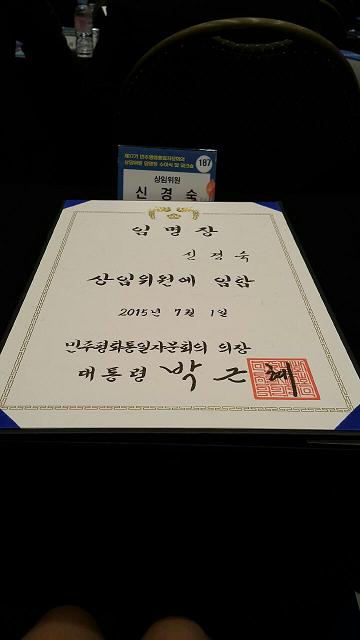 제17기 민주평화통일자문회의
상임위원 임명장 수여식 및 워크숍
187
상임위원
신 경 숙
임 명 장
신 경 숙
상임위원에 임함
2015년 7월 1일
민주평화통일자문회의 의장
대통령 박 근 혜